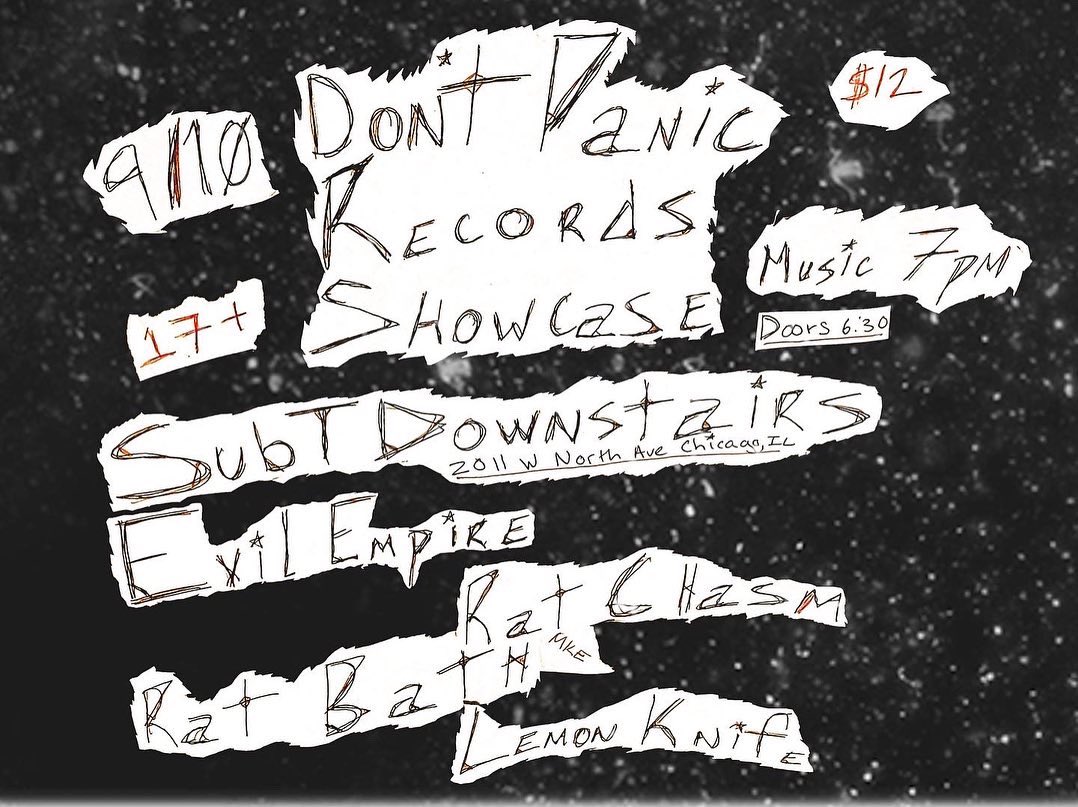 $12
9/10
Dont Panic
Records
Showcase
Music 7pm
Doors 6:30
17+
SubT Downstairs
2011 W North Ave Chicago, IL
Evil Empire
Rat Chasm
MKE
Rat Bath
Lemon Knife